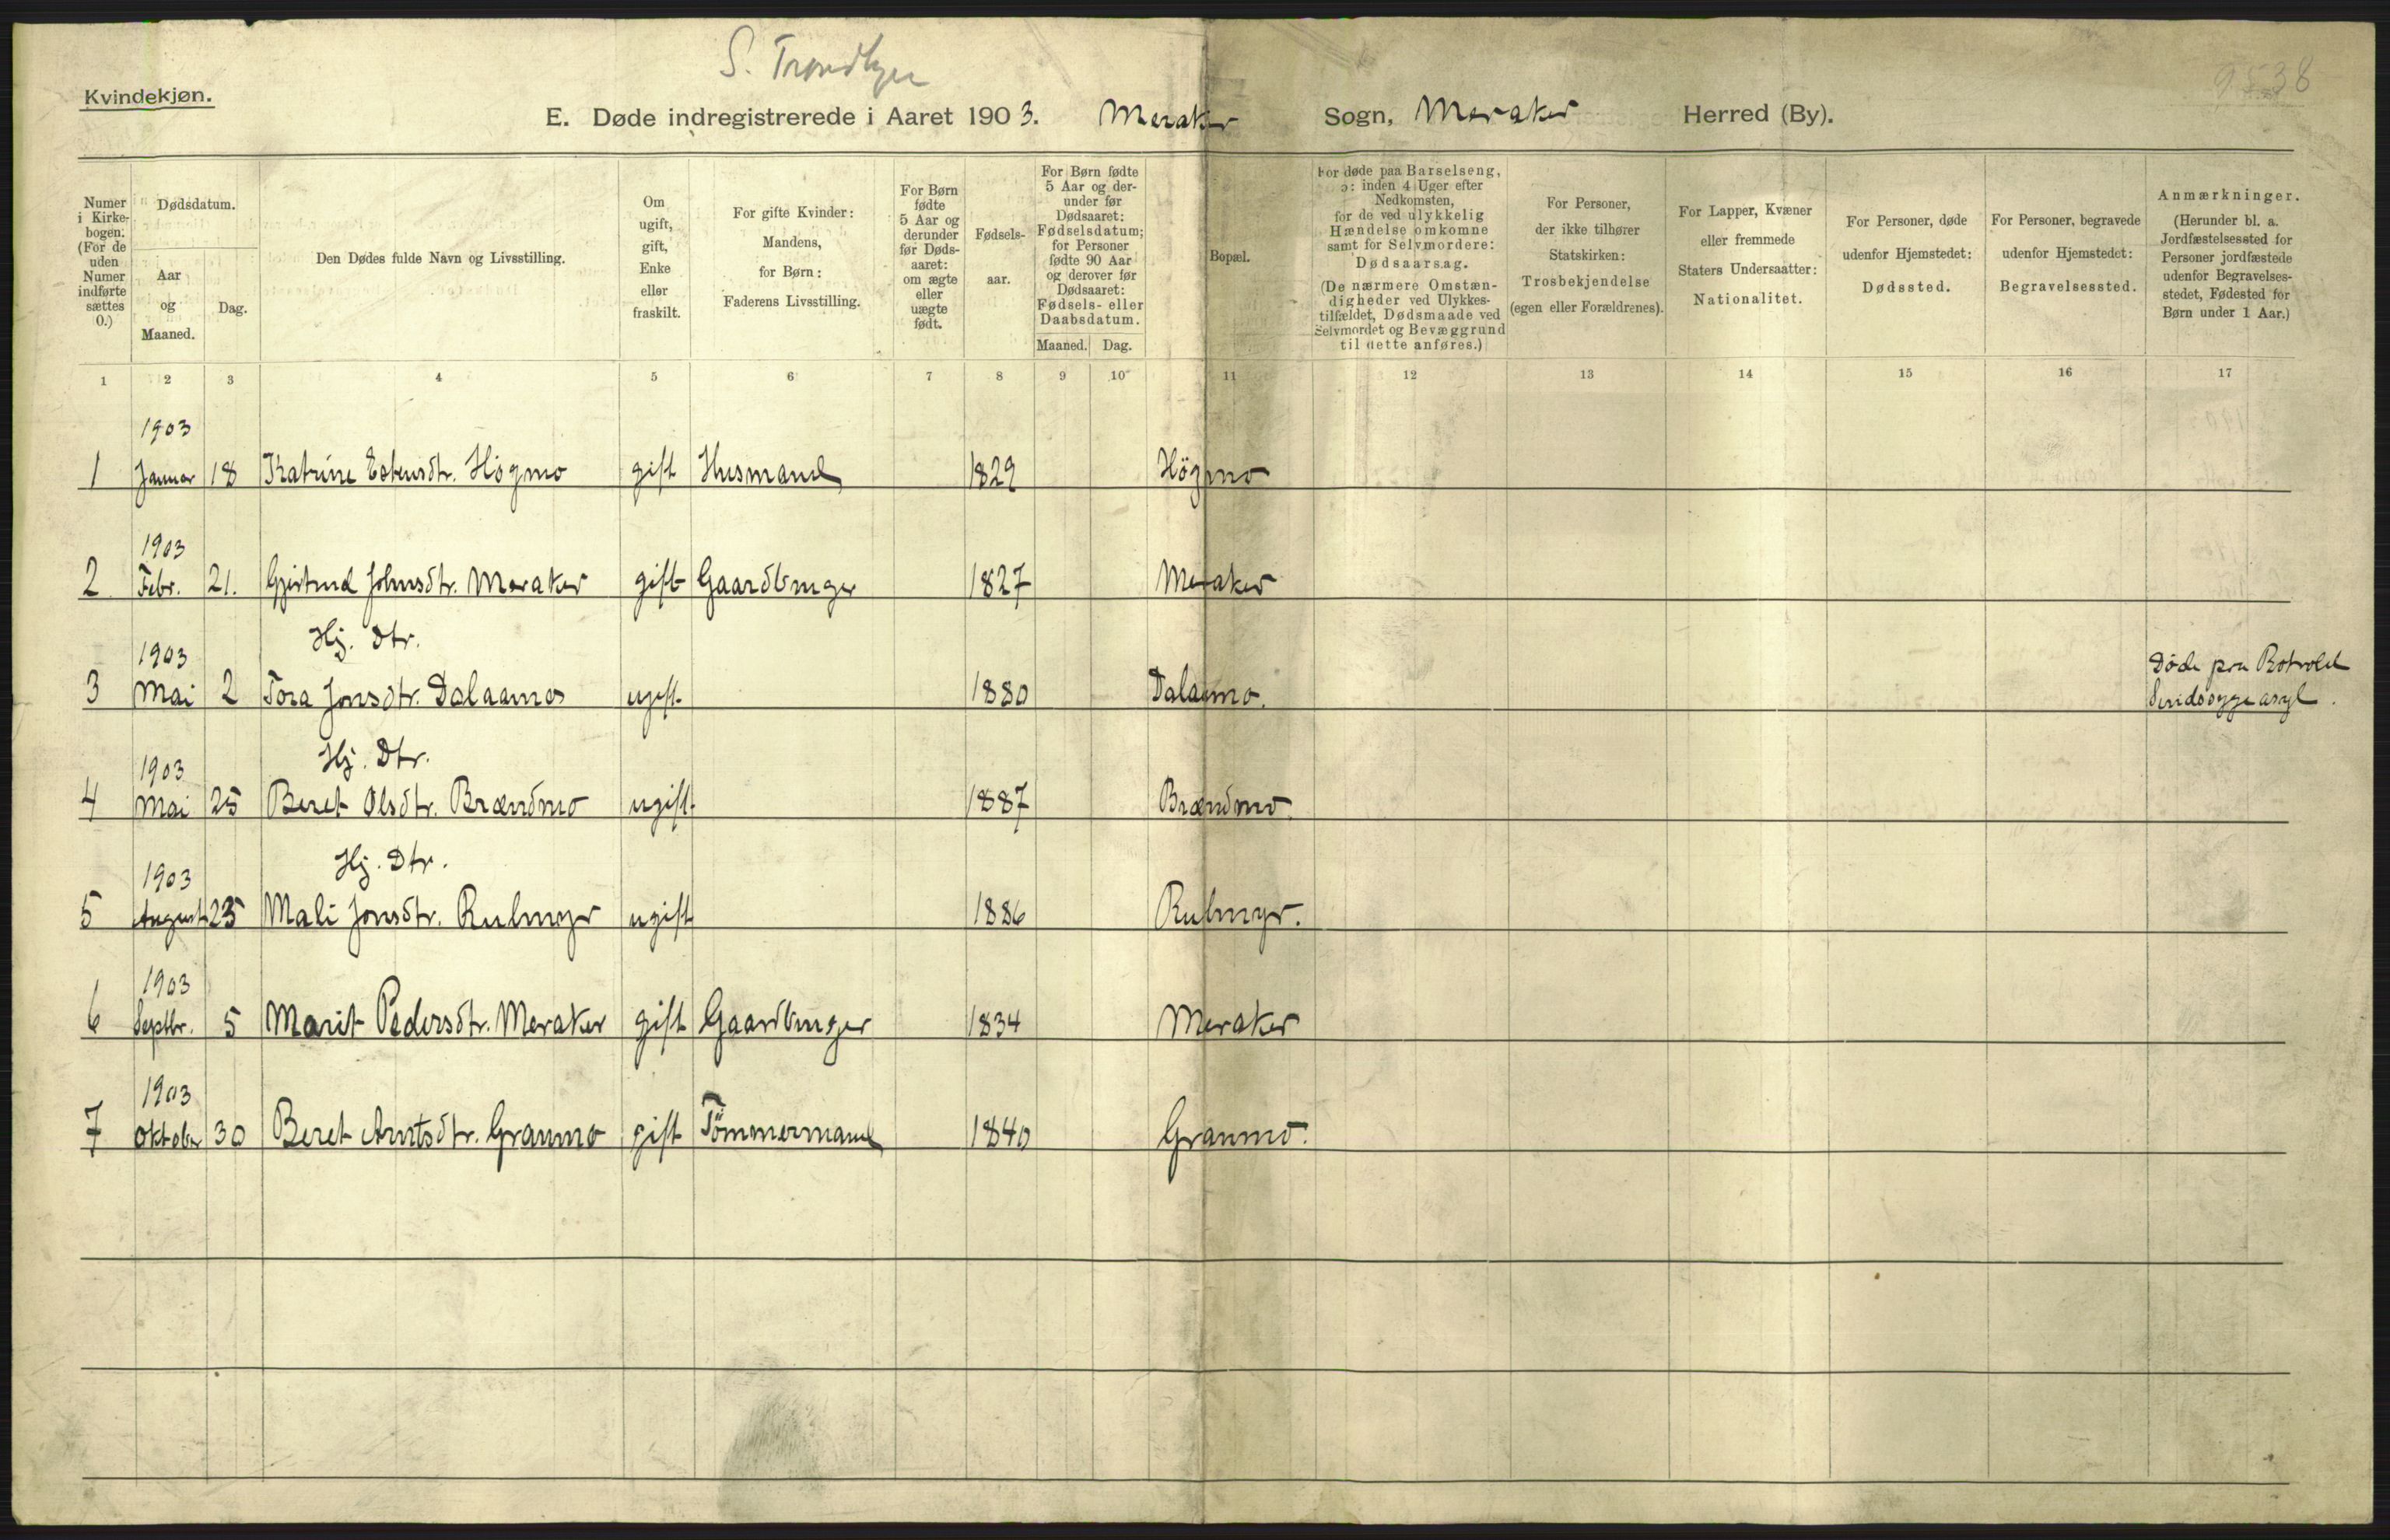 S. Trondhjem
9538
Kvindekjøn.
E. Døde indregistrerede i Aaret 1903. Meraker Sogn, Meraker Herred (By).
Numer
i Kirke-
bogen.
(For de
uden
Numer
indførte
sættes
0.)
Dødsdatum.
Aar
og
Maaned.
Dag.
Den Dødes fulde Navn og Livsstilling.
Om
ugift,
gift,
Enke
eller
fraskilt.
For gifte Kvinder:
Mandens,
for Børn:
Faderens Livsstilling.
For Børn
fødte
5 Aar og
derunder
før Døds-
aaret:
om ægte
eller
uægte
født.
Fødsels-
aar.
For Børn fødte
5 Aar og der-
under før
Dødsaaret:
Fødselsdatum;
for Personer
fødte 90 Aar
og derover før
Dødsaaret:
Fødsels- eller
Daabsdatum.
Maaned. Dag.
Bopæl.
For døde paa Barselseng,
ɔ: inden 4 Uger efter
Nedkomsten,
for de ved ulykkelig
Hændelse omkomne
samt for Selvmordere:
Dødsaarsag.
(De nærmere Omstæn-
digheder ved Ulykkes-
tilfældet, Dødsmaade ved
Selvmordet og Bevæggrund
til dette anføres.)
For Personer,
der ikke tilhører
Statskirken:
Trosbekjendelse
(egen eller Forældrenes).
For Lapper, Kvæner
eller fremmede
Staters Undersaatter:
Nationalitet.
For Personer, døde
udenfor Hjemstedet:
Dødssted.
For Personer, begravede
udenfor Hjemstedet:
Begravelsessted.
Anmærkninger.
(Herunder bl. a.
Jordfæstelsessted for
Personer jordfæstede
udenfor Begravelses-
stedet, Fødested for
Børn under 1 Aar.)
1 2 3 4 5 6 7 8 9 10 11 12 13 14 15 16 17
1903
1 Januar 18 Katrine Estensdtr. Högmo gift Husmand 1829 Högmo
1903
2 Febr. 21. Gjertrud Johnsdtr. Meraker gift Gaardbruger 1827 Meraker
Hj. Dtr.
1903 Døde paa Rotvold
3 Mai 2 Tora Jonsdtr. Dalaamo ugift 1880 Dalaamo. Sindssygeasyl.
Hj. Dtr.
1903
4 Mai 25 Beret Olsdtr. Brændmo ugift 1887 Brændmo.
Hj. Dtr.
1903
5 August 25 Mali Jonsdtr. Rulmyr ugift 1886 Rulmyr.
1903
6 Septbr. 5 Marit Pedersdtr. Meraker gift Gaardbruger 1834 Meraker
1903
7 Oktober 30 Beret Arntsdtr. Granmo gift Tömmermand 1840 Granmo.